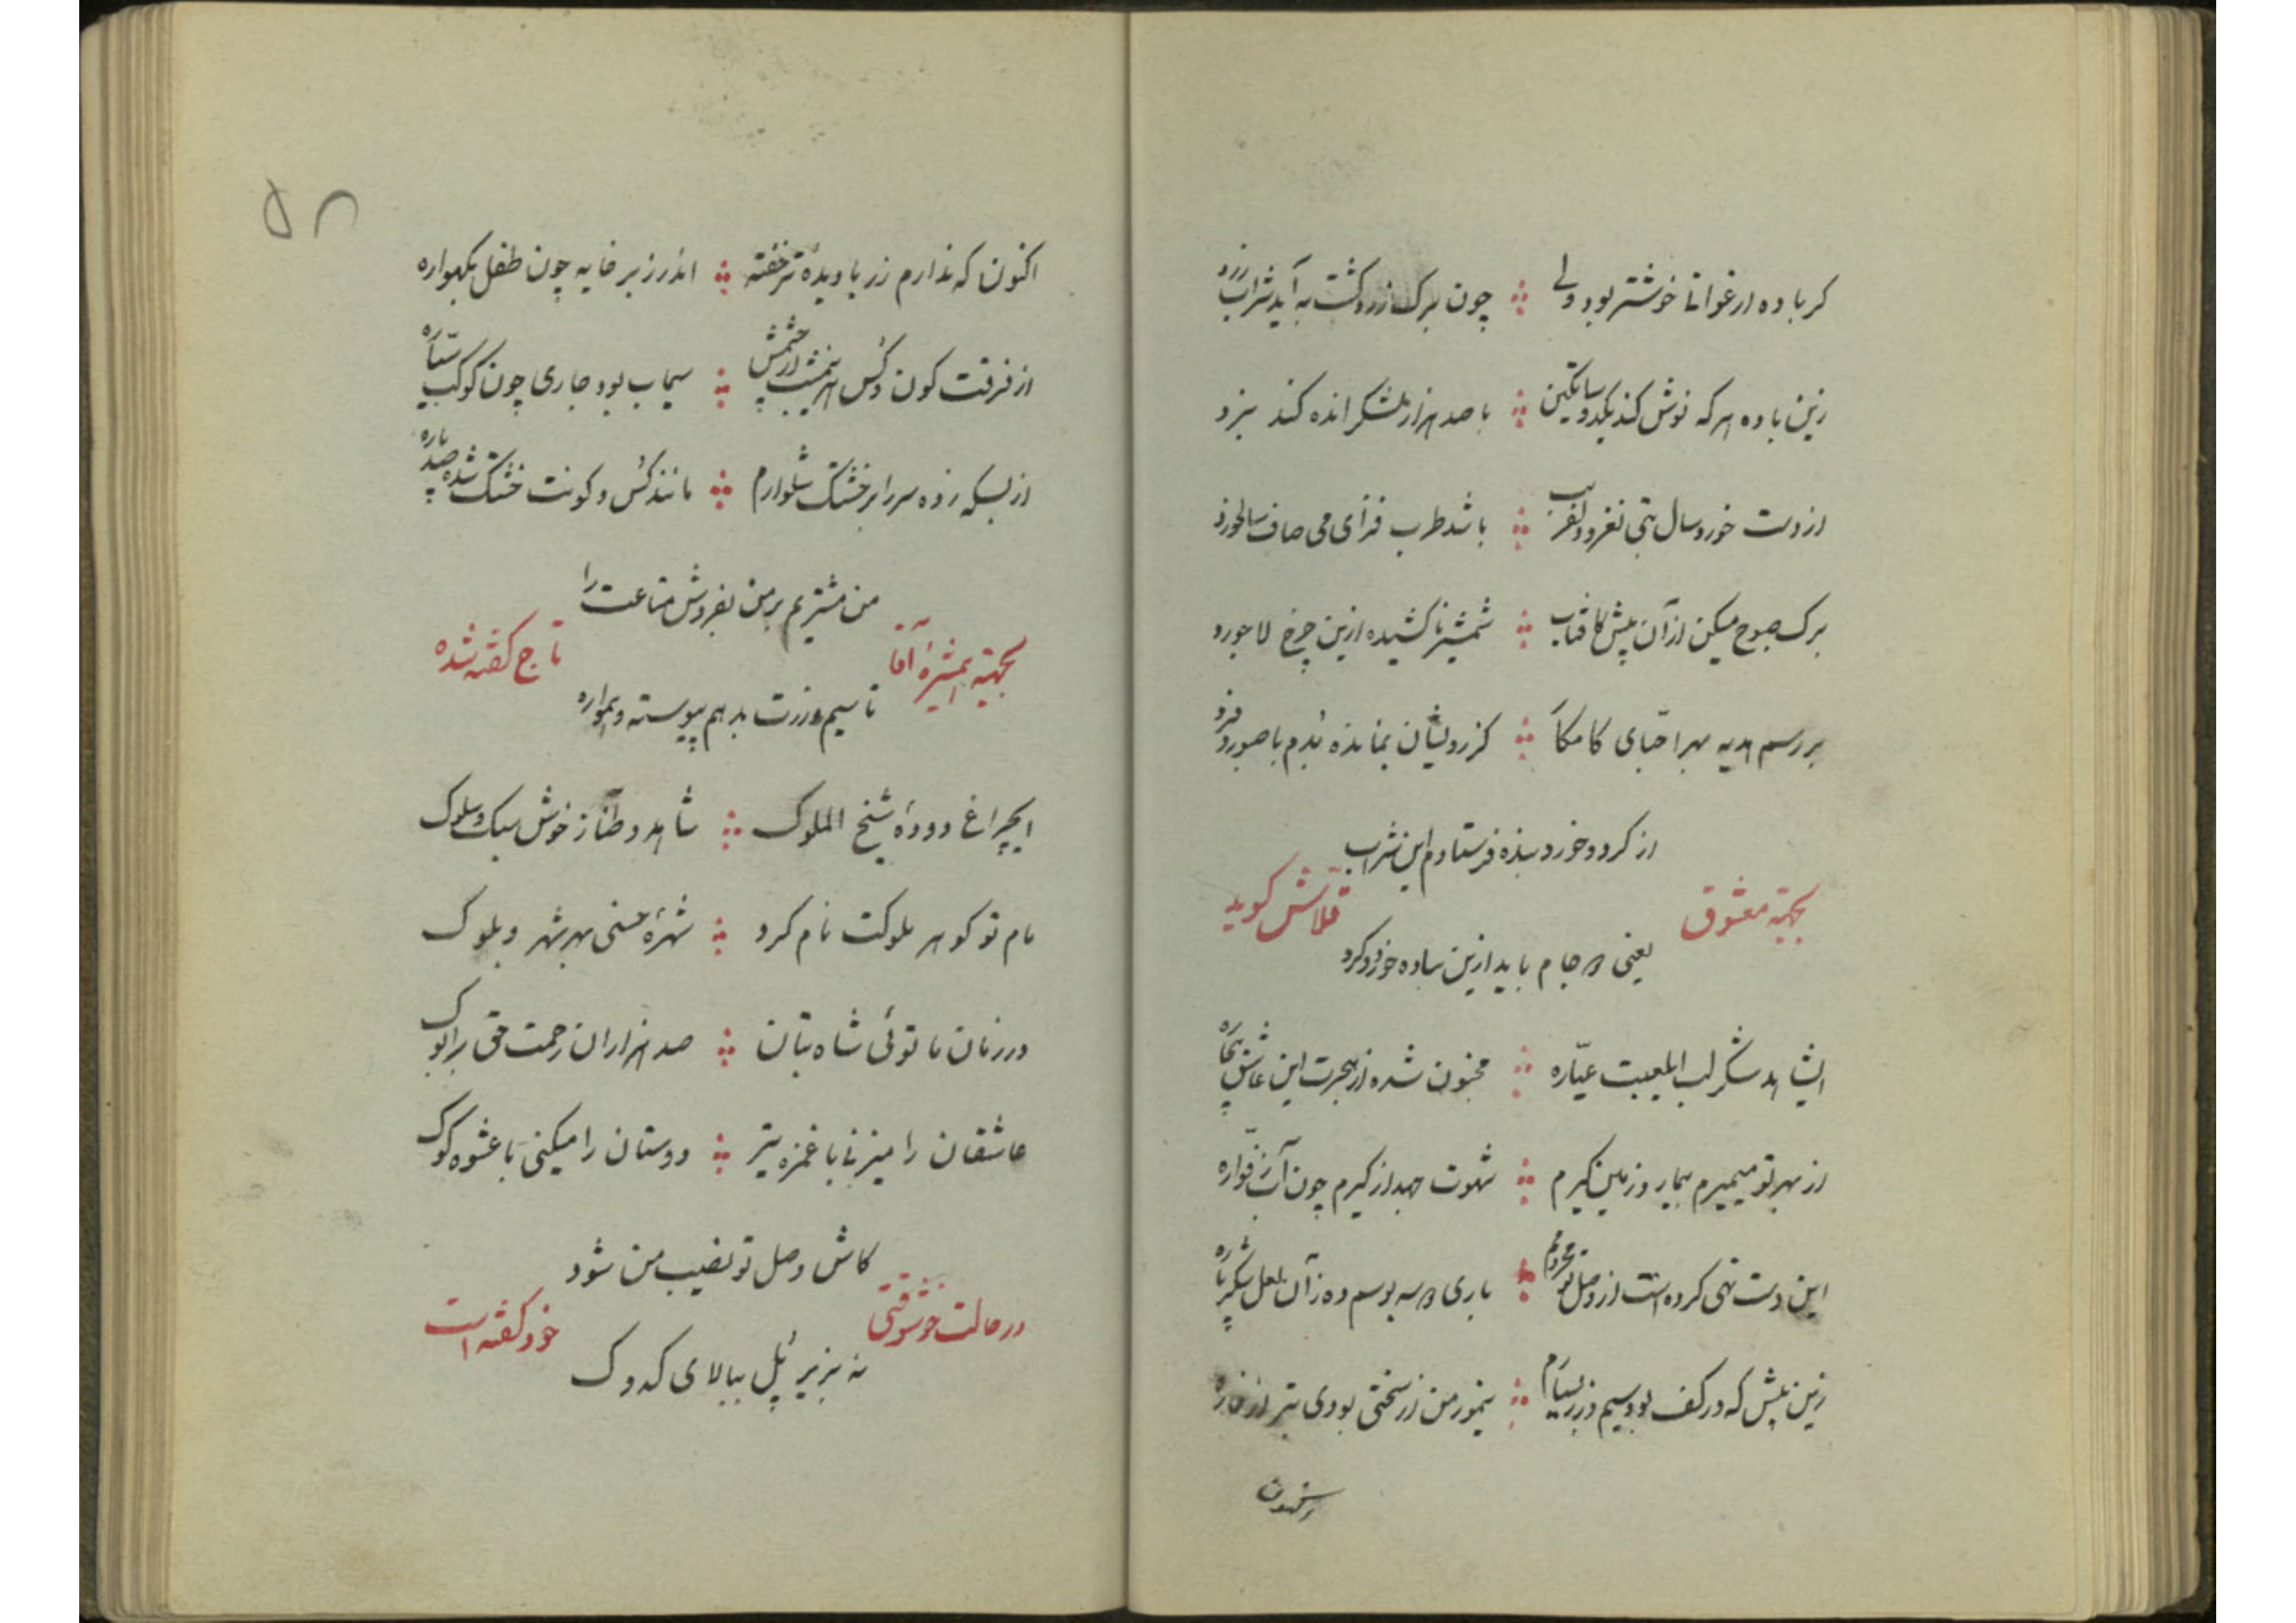 کر باده ارغوانی خوشتر بود ولی ؞ چون برک زرد کشت به آید شراب زرد
زین باده هر که نوش کند یکدو ساتکین ؞ با صد هزار لشکر انده کند نبرد
از دست خورد سال بتی نغز و دلفریب ؞ باشد طرب فزای می صاف سالخورد
برک صبوح میکن از آن پیش کافتاب ؞ شمشیر ناکشیده ازین چرخ لاجورد
بر رسم هدیه بهر احبای کامکار ؞ کز رویشان نمانده بدم با صبور و فرد
از کرد و خورد بنده فرستادم این شراب
بجهته معشوق قلاش کوید
یعنی دو جام باید ازین ساده خورد و کرد
ایشاهد شکر لب ایلعبت عیاره ؞ مجنون شده از هجرت این عاشق بیچاره
از بهر تو میمیرم بیمار و زمین کیرم ؞ شهوت جهد از کیرم چون آب ز فواره
این دست تهی کرده است از وصل تو محرومم ؞ باری دو سه بوسم ده زآن لعل شکر پاره
زین پیش که در کف بود سیم و زر بسیارم ؞ نیمور من از سختی بودی بتر از خاره
اکنون که ندارم زر با دیده تر خفته ؞ اندر زبر خایه چون طفل بکهواره
از فرقت کون و کس هر نیمشب از چشمش ؞ سیماب بود جاری چون کوکب سیاره
از بسکه زده سر را بر خشتک شلوارم ؞ مانند کس و کونت خشتک شده صد پاره
من مشتریم بر من بفروش متاعت را
بجهته همشیرهٔ آقا تاج کفته شده
تا سیم و زرت بدهم پیوسته و همواره
ایچراغ دودهٔ شیخ الملوک ؞ شاهد و طناز خوش سبک و سلوک
مام تو کوهر ملوکت نام کرد ؞ شهرهٔ حسنی بهر شهر و بلوک
در زنان ما توئی شاه بتان ؞ صد هزاران رحمت حق بر ابوک
عاشقان را میزنی با غمزه تیر ؞ دوستان را میکنی با عشوه کوک
کاش وصل تو نصیب من شود
در حالت خوشوقتی خود کفته است
نه بزیر پل ببالای کدوک